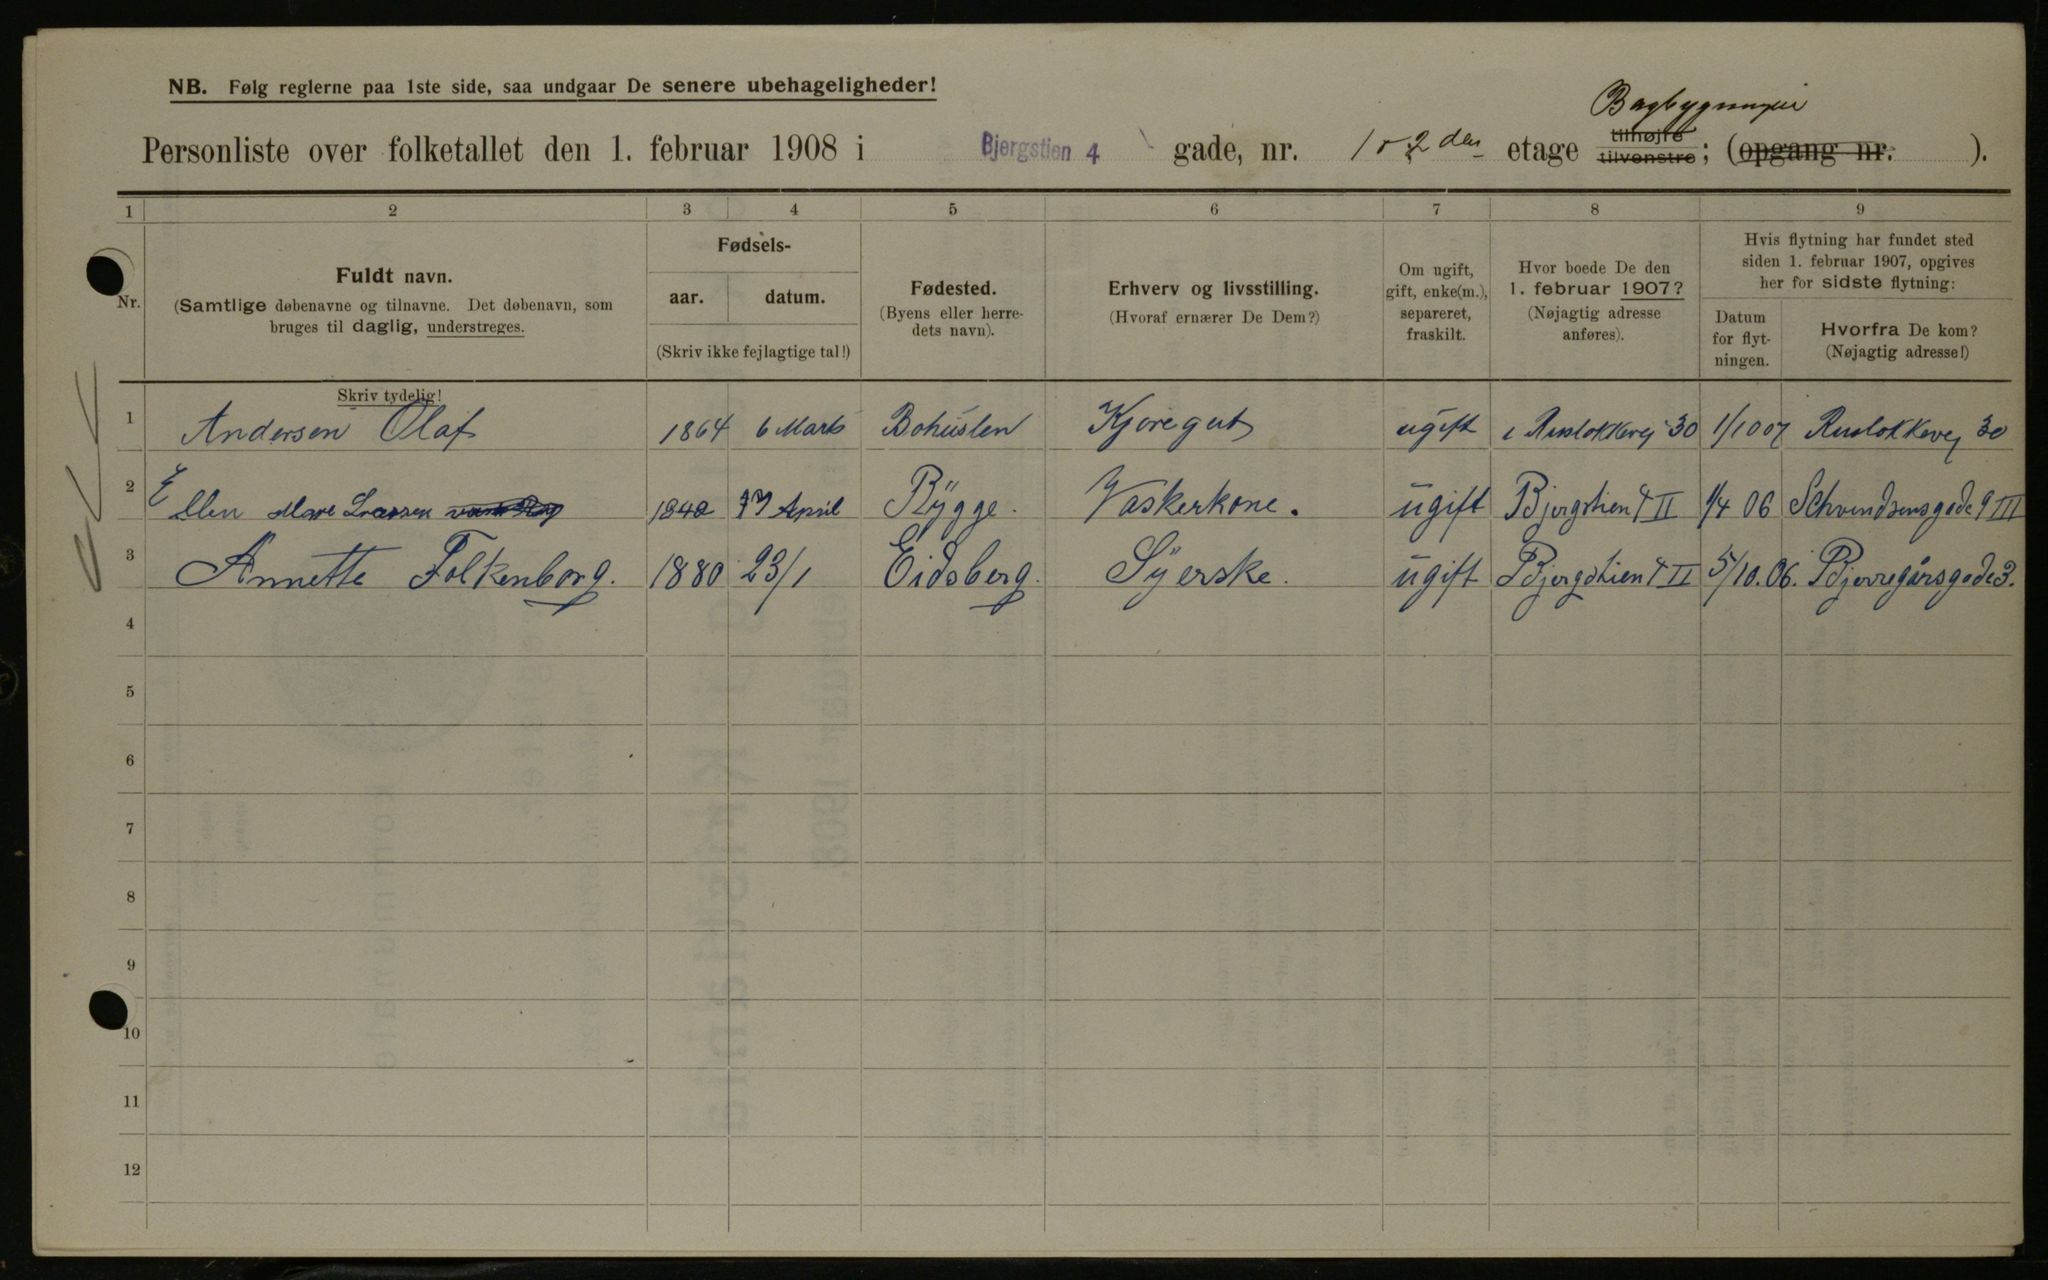 NB. Følg reglerne paa 1ste side, saa undgaar De senere ubehageligheder!
Personliste over folketallet den 1. februar 1908 i Bjergstien 4 gade, nr. 1 o 2 den etage tilhøjre tilvenstre; (opgang nr. ).
1 2 3 4 5 6 7 8 9
Nr.
Fuldt navn.
(Samtlige døbenavne og tilnavne. Det døbenavn, som
bruges til daglig, understreges.
Skriv tydelig!
Fødsels-
aar. datum.
(Skriv ikke fejlagtige tal!)
Fødested.
(Byens eller herre-
dets navn).
Erhverv og livsstilling.
(Hvoraf ernærer De Dem?)
Om ugift,
gift, enke(m.),
separeret,
fraskilt.
Hvor boede De den
1. februar 1907?
(Nøjagtig adresse
anføres).
Hvis flytning har fundet sted
siden 1. februar 1907, opgives
her for sidste flytning:
Datum
for flyt-
ningen.
Hvorfra De kom?
(Nøjagtig adresse!)
1 Andersen Olaf 1864 6 Marts Bohuslen Kjøregut ugift Ruslokkevej 30 1/10 07 Ruslokkevej 30
2 Ellen Mare Larssen 1842 17 April Rÿgge. Vaskerkone. ugift Bjergstien 4 II 1/4 06 Schvendsensgade 9 III
3 Annette Folkenborg. 1880 23/1 Eidsberg. Sÿerske. ugift Bjergstien 4 II 5/10.06. Bjerregårsgade 3.
4
5
6
7
8
9
10
11
12